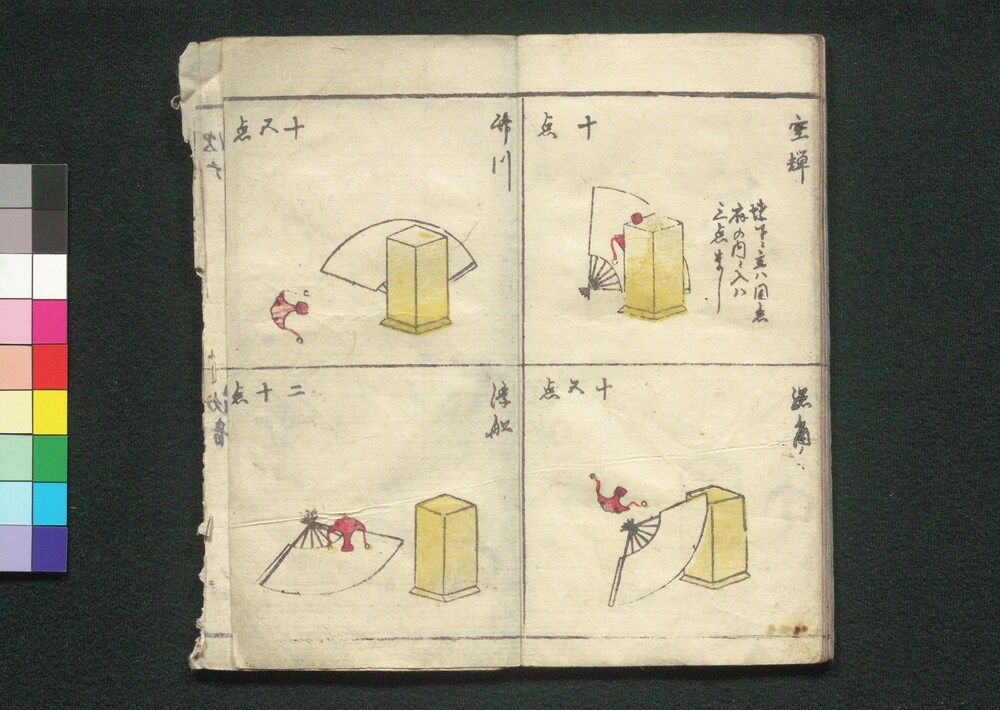 空蝉
十点
下ニ立ハ同点
の内ニ入ハ
三点まし
総角
十五点
竹川
十五点
浮船
二十点